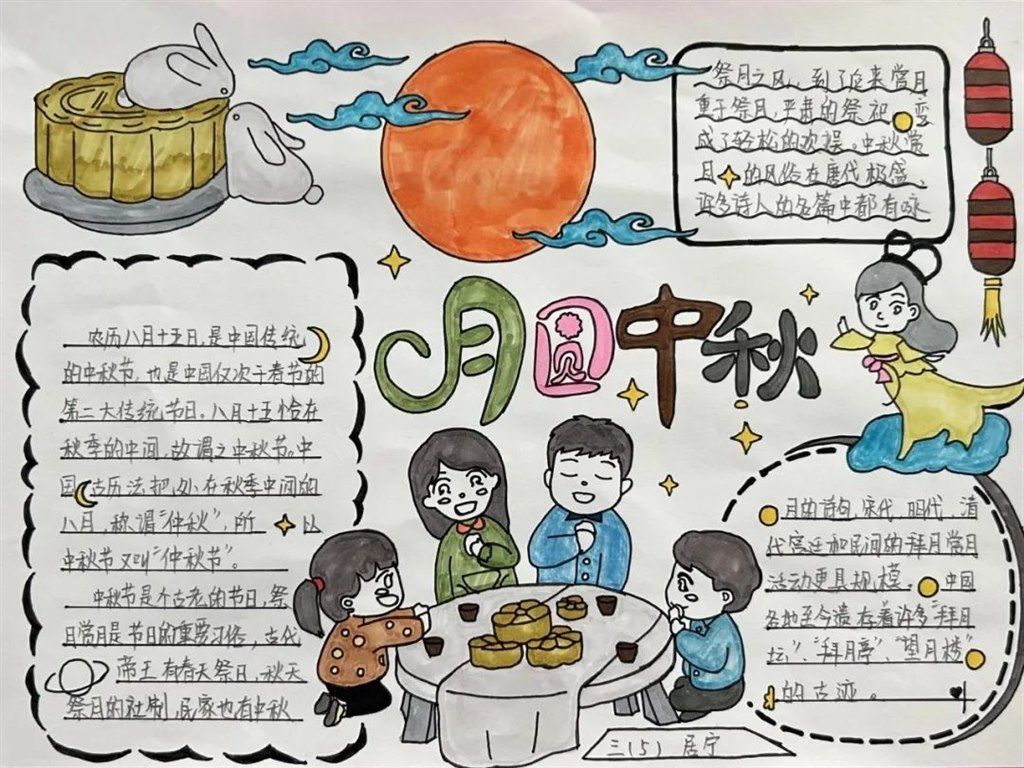 月圆中秋
农历八月十五日,是中国传统
的中秋节,也是中国仅次于春节的
第二大传统节日。八月十五恰在
秋季的中间,故谓之中秋节。中
国古历法把处在秋季中间的
八月,称谓"仲秋",所以
中秋节又叫"仲秋节"。
中秋节是个古老的节日,祭
月赏月是节日的重要习俗,古代
帝王有春天祭日,秋天
祭月的社制,民家也有中秋
祭月之风,到了后来赏月
重于祭月,严肃的祭祀变
成了轻松的欢娱。中秋赏
月的风俗在唐代极盛,
许多诗人的名篇中都有咏
月的诗句,宋代、明代、清
代宫廷和民间的拜月赏月
活动更具规模。中国
各地至今遗存着许多"拜月
坛"、"拜月亭"、"望月楼"
的古迹。
三(5) 居宁